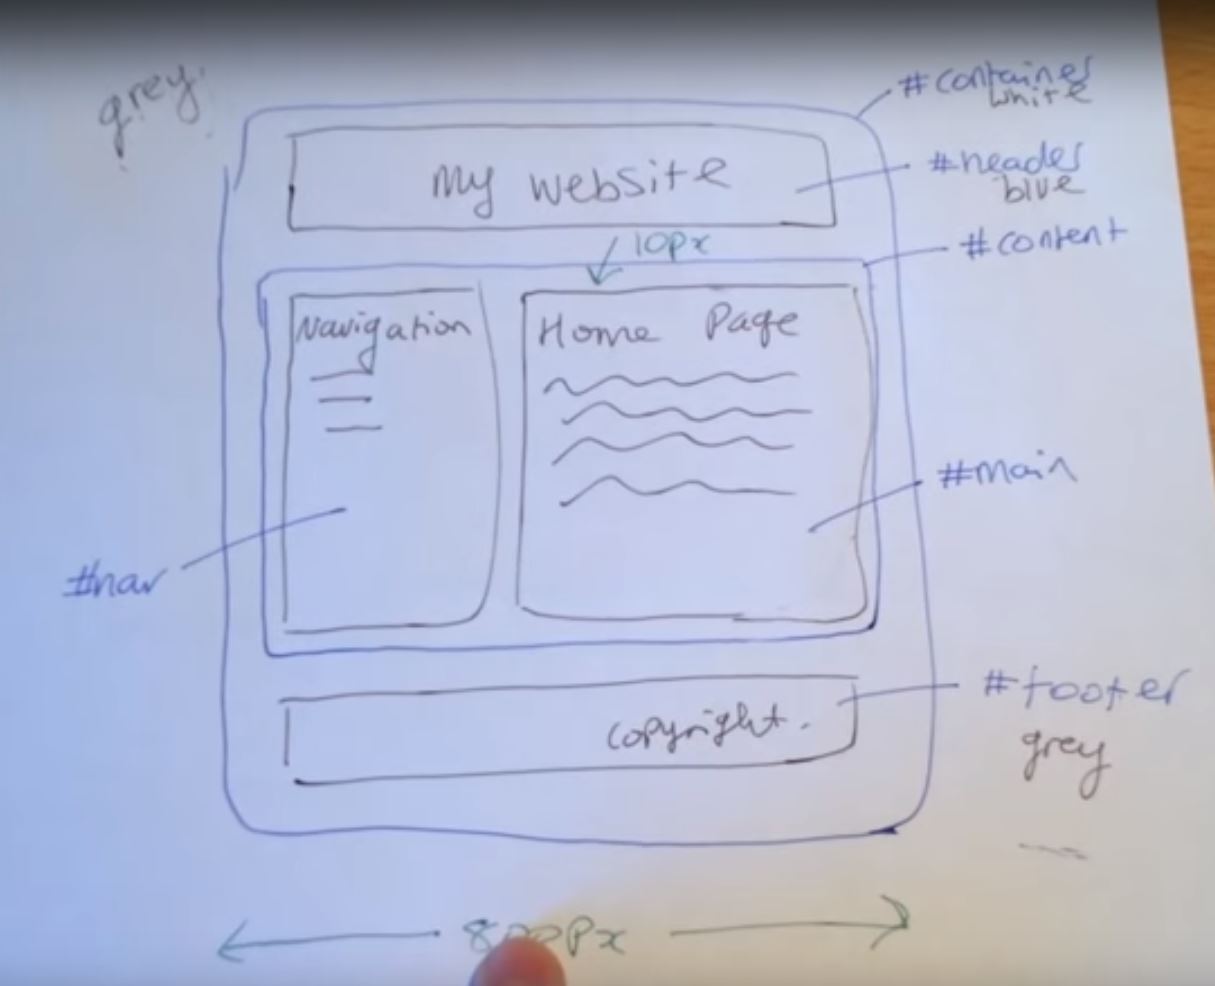 grey.
#container
white
My website
#header
blue
10px
#content
Navigation
Home Page
#main
#nav
#footer
copyright.
grey